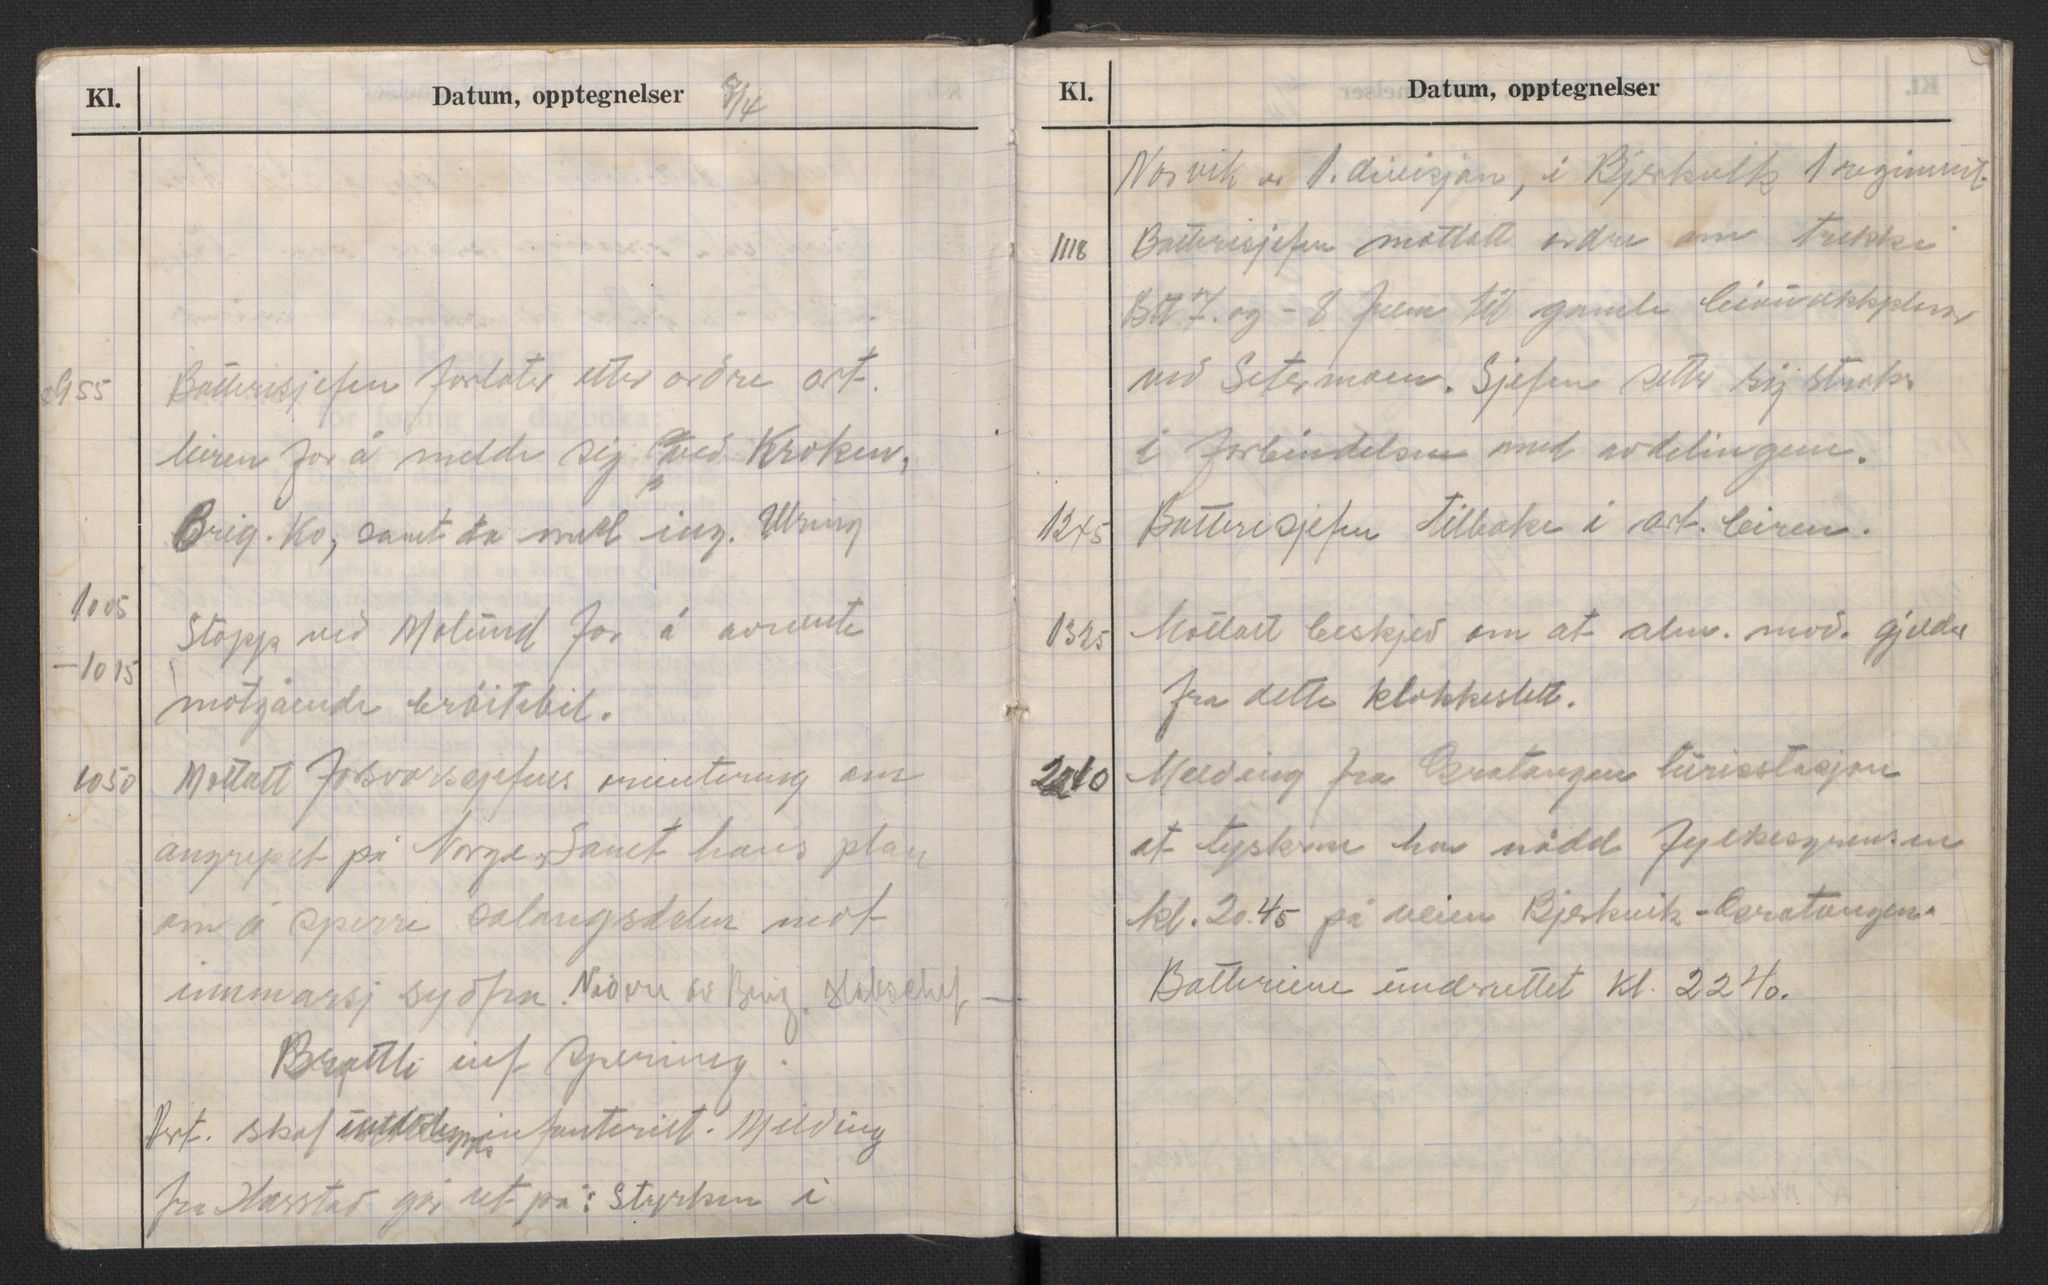 Kl. Datum, opptegnelser 9/4
0955 Batterisjefen forlater etter ordre art.
leiren for å melde sig ved Kroken,
Brig. Ko, samt ta med ing.
1005 Stopp ved Molund for å avvente
-1015 motgående brøitebil.
1050 Mottatt Forsvarssjefens orientering om
angrepet på Norge. Samt hans plan
om å sperre Salangsdalen mot
innmarsj sydfra. av Brig.
Brattli inf sperring.
Art. skal infanteriet. Melding
fra Harstad går ut på: Styrken i
Kl. Datum, opptegnelser
Narvik er 1. divisjon, i Bjerkvik 1 regiment.
1118 Batterisjefen mottatt ordre om trekke
Batt 7. og - 8 frem til gamle bivuakkplasser
ved Setermoen. Sjefen setter sig straks
i forbindelse med avdelingene.
1245 Batterisjefen tilbake i art. leiren.
1325 Mottatt beskjed om at alm. mob. gjelder
fra dette klokkeslett.
2210 Melding fra Gratangen turiststasjon
at tyskerne har nådd fylkesgrensen
kl. 20.45 på veien Bjerkvik-Gratangen.
Batteriene underrettet kl. 2240.